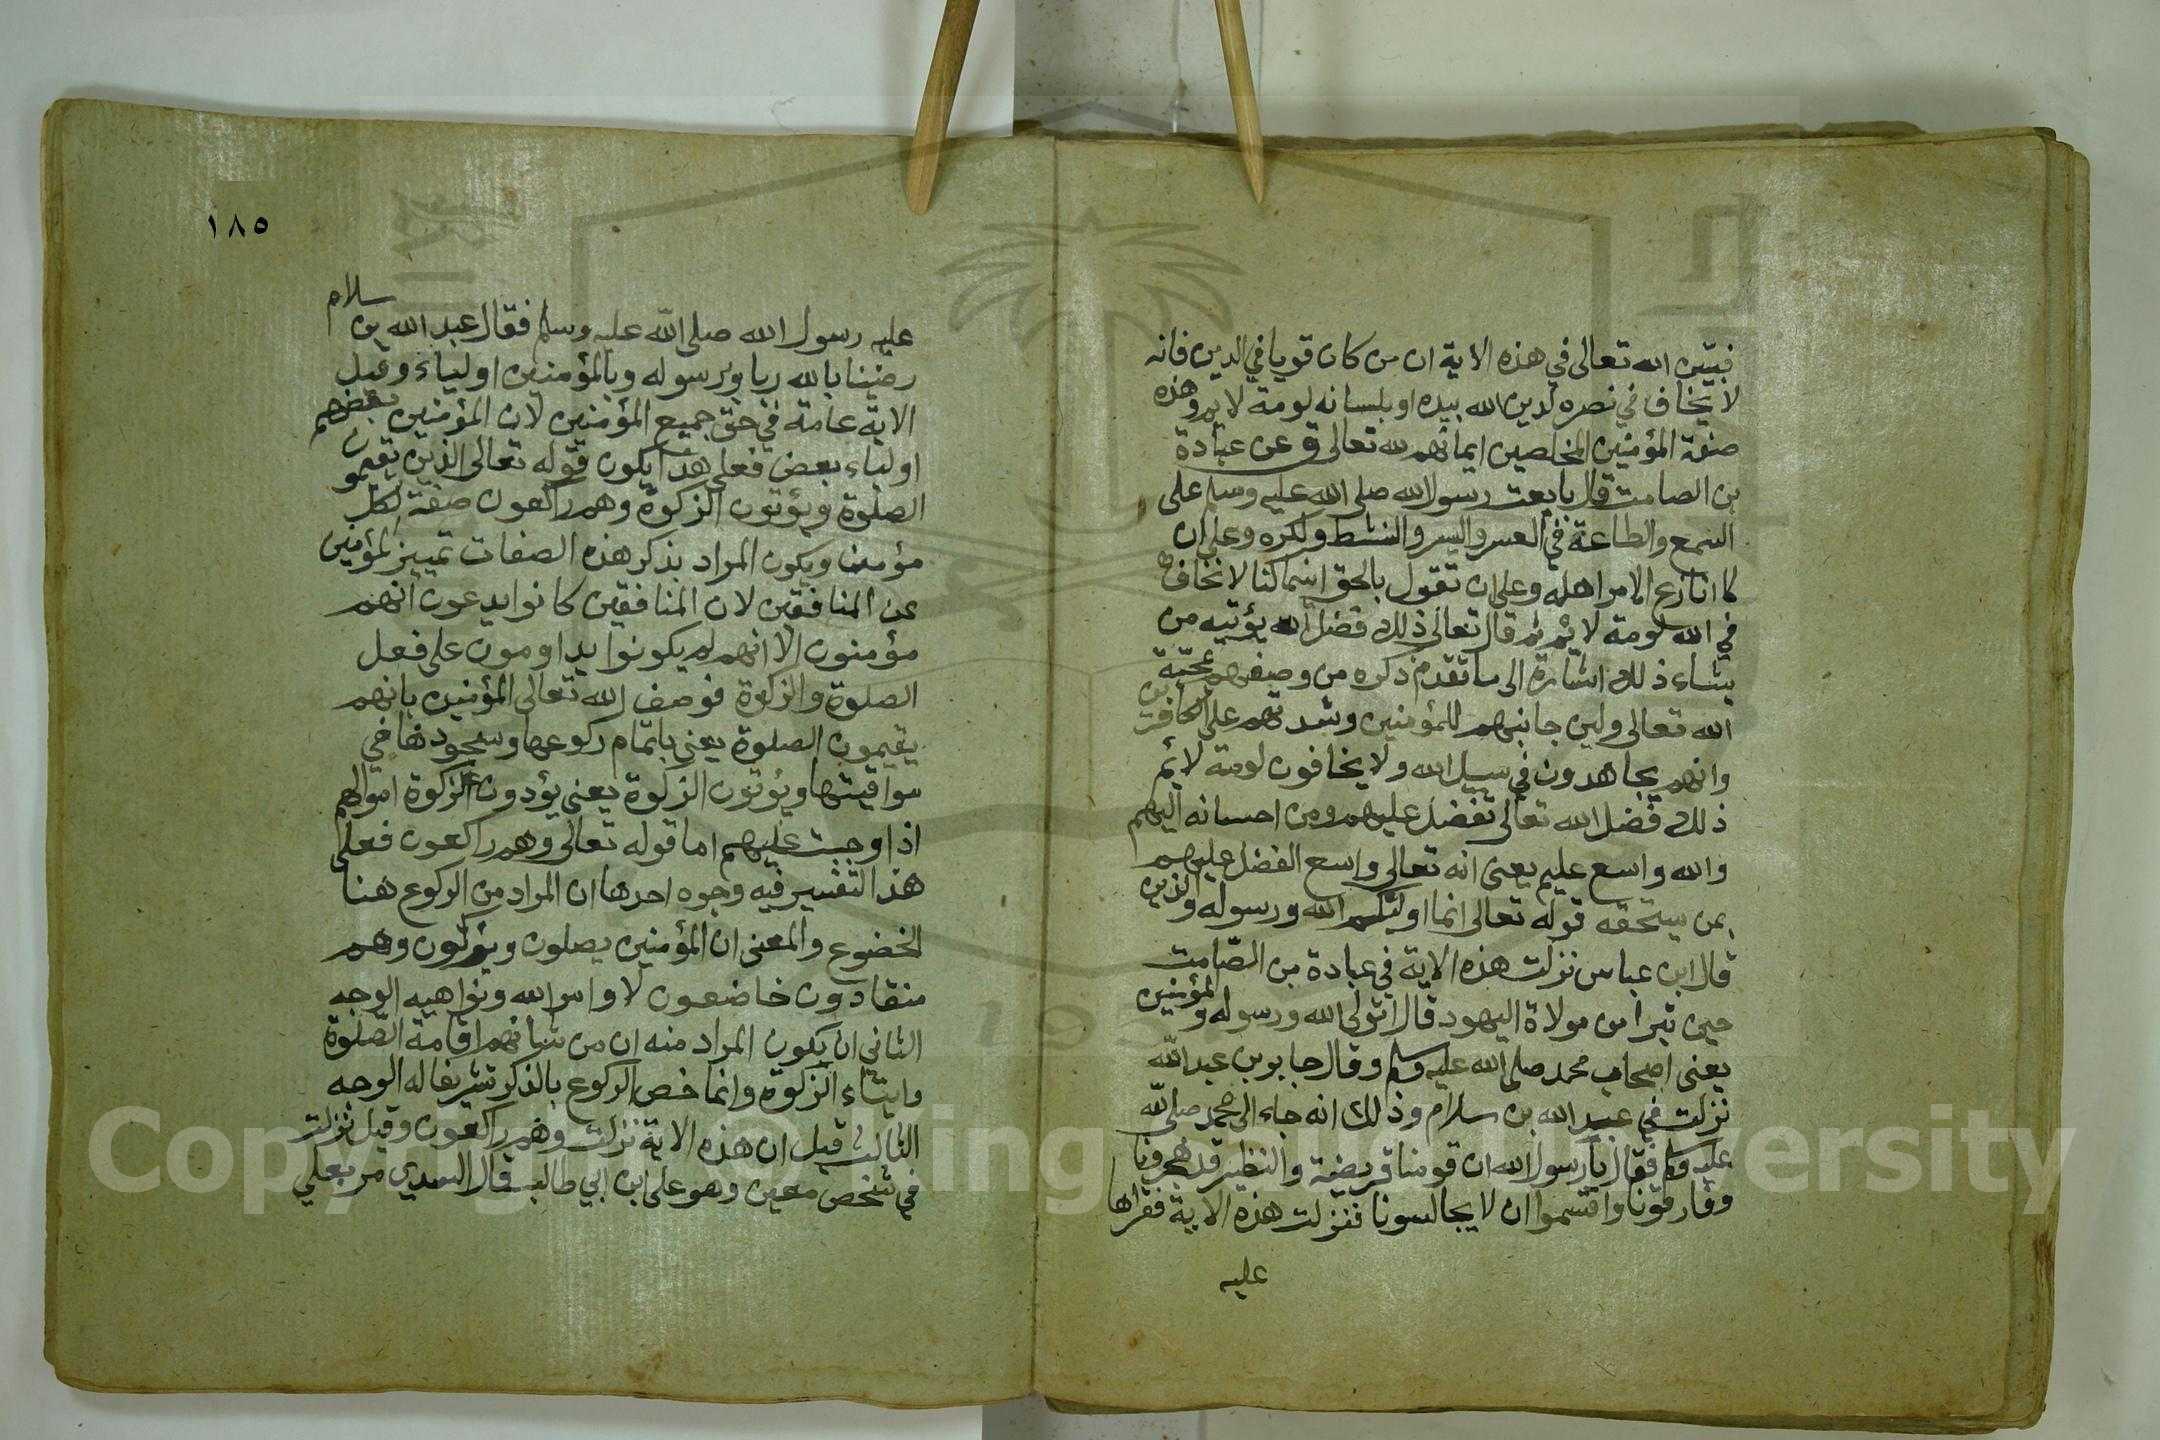 فبين الله تعالى في هذه الاية ان من كان قويا في الدين فانه
لا يخاف في نصره لدين الله بيده او بلسانه لومة لايم وهذه
صفة المؤمنين المخلصين ايمانهم لله تعالى ق عن عبادة
بن الصامت قال بايعت رسول الله صلى الله عليه وسلم على
السمع والطاعة في العسر واليسر والنشط ولكره وعلى ان
لا ننازع الامر اهله وعلى ان تقول بالحق اينما كنا لا نخاف
في الله لومة لايم ثم قال تعالى ذلك فضل الله يؤتيه من
يشاء ذلك اشارة الى ما تقدم ذكره من وصفهم محبة
الله تعالى ولين جانبهم للمؤمنين وشدتهم على الكافرين
وانهم يجاهدون في سبيل الله ولا يخافون لومة لائم
ذلك فضل الله تعالى تفضل عليهم ومن احسانه اليهم
والله واسع عليم يعنى انه تعالى واسع الفضل عليهم
بمن يستحقه قوله تعالى انما وليكم الله ورسوله والذين
قال ابن عباس نزلت هذه الاية في عبادة بن الصامت
حين تبرا من مولاة اليهود قال اتولى الله ورسوله والمؤمنين
يعنى اصحاب محمد صلى الله عليه وسلم وقال جابر بن عبد الله
نزلت في عبد الله بن سلام وذلك انه جاء الى محمد صلى الله
عليه وسلم فقال يا رسول الله ان قومنا قريضة والنظير قد هجرونا
وفارقونا واقسموا ان لا يجالسونا فنزلت هذه الاية فقراها
عليه
١٨٥
عليه رسول الله صلى الله عليه وسلم فقال عبد الله بن سلام
رضينا بالله ربا وبرسوله وبالمؤمنين اولياء وقيل
الاية عامة في حق جميع المؤمنين لان المؤمنين بعضهم
اولياء بعض فعلى هذا يكون قوله تعالى الذين يقيمون
الصلوة ويؤتون الزكوة وهم راكعون صفة لكل
مؤمن ويكون المراد بذكر هذه الصفات تمييز المؤمنين
عن المنافقين لان المنافقين كانوا يدعون انهم
مؤمنون الا انهم لم يكونوا يداومون على فعل
الصلوة والزكوة فوصف الله تعالى المؤمنين بانهم
يقيمون الصلوة يعنى باتمام ركوعها وسجودها في
مواقيتها ويؤتون الزكوة يعنى يؤدون الزكوة اموالهم
اذا وجبت عليهم اما قوله تعالى وهم راكعون فعلى
هذا التفسير فيه وجوه احدها ان المراد من الركوع هنا
الخضوع والمعنى ان المؤمنين يصلون ويزكون وهم
منقادون خاضعون لاوامر الله ونواهيه الوجه
الثاني ان يكون المراد منه ان من شانهم اقامة الصلوة
وايتاء الزكوة وانما خص الركوع بالذكر تشريفا له الوجه
الثالث قيل ان هذه الاية نزلت وهم راكعون وقيل نزلت
في شخص معين وهو على ابن ابي طالب قال السدي مر بعلي
Copyright © King Saud University